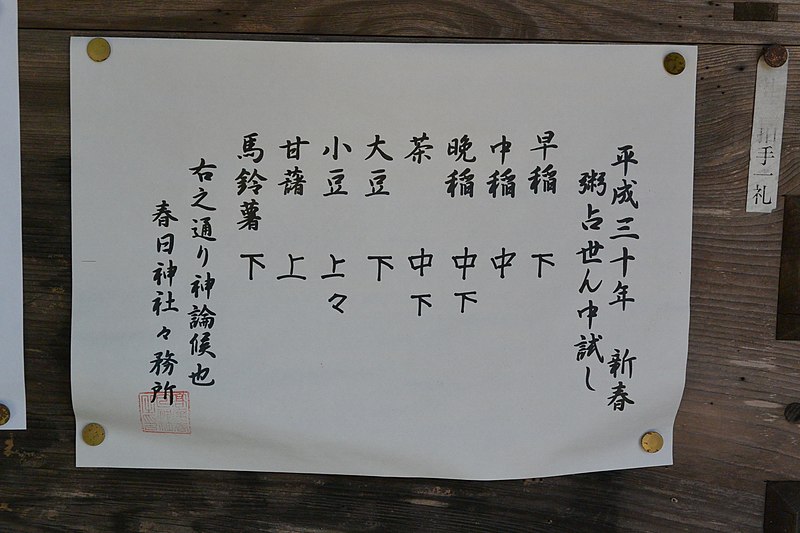 平成三十年　新春
粥占世ん中試し
早稲　下
中稲　中
晩稲　中下
茶　中下
大豆　下
小豆　上々
甘藷　上
馬鈴薯　下
右之通り神論候也
春日神社々務所
手一礼